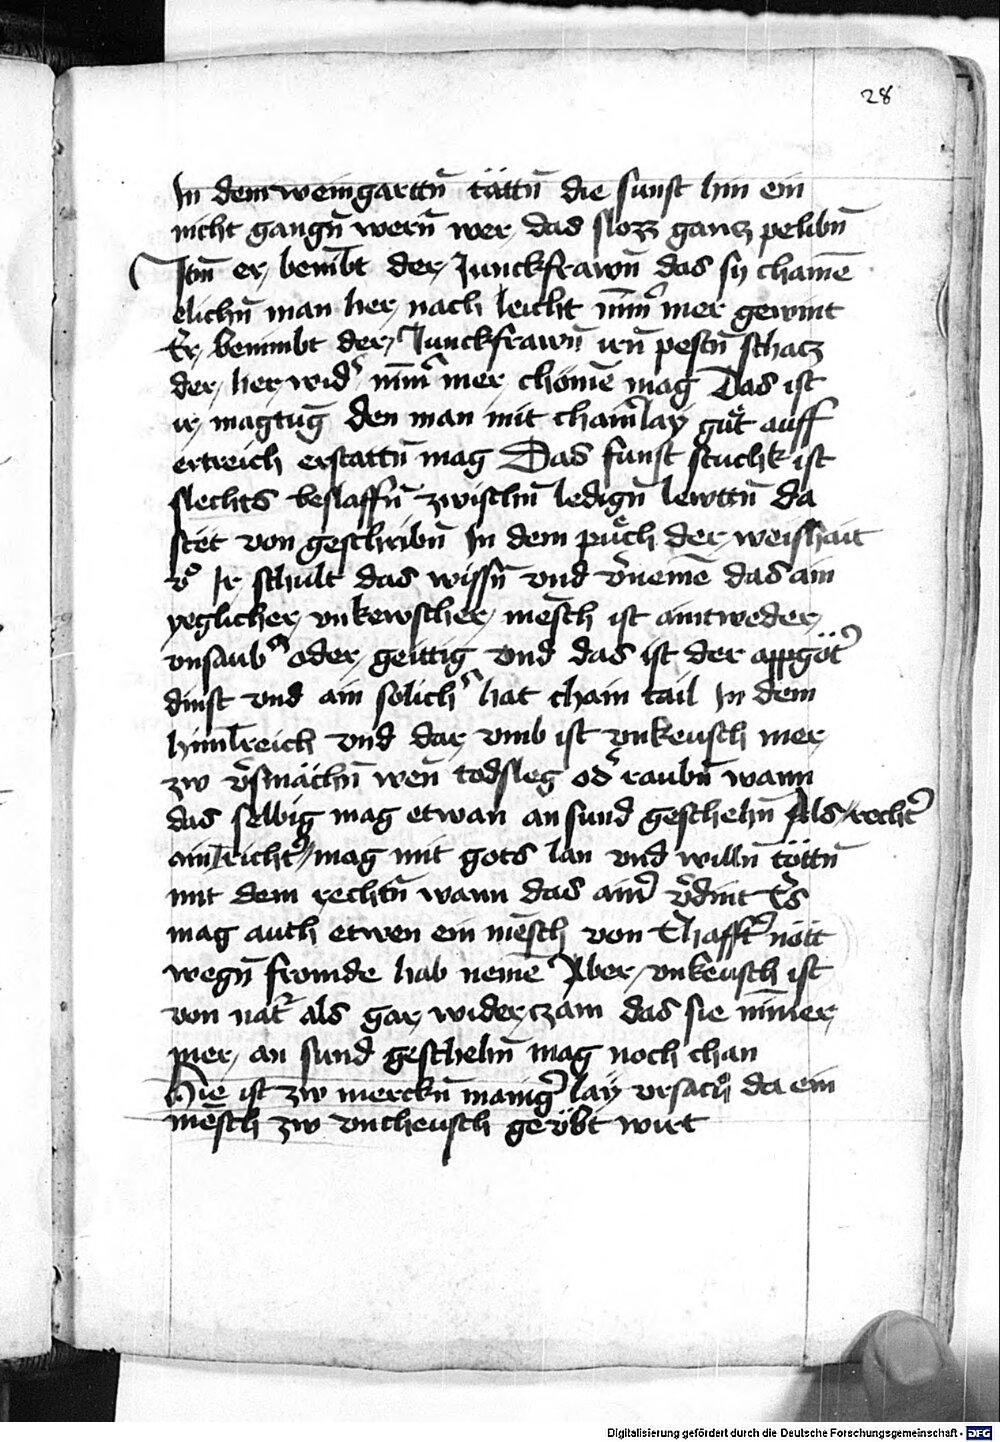 28
In dem weingarttn̄ tättn̄ die sunst hin ein
nicht gangn̄ wern̄ wer das slozz gancz pelibn̄
Itm̄ er benimbt der Junckfrawn̄ das sy chainē
elichn̄ man her nach leicht nim̄er mer gewint
Er benimbt der Junckfrawn̄ irn̄ pestn̄ schacz
der her wider nim̄er mer chömē mag Das ist
ir magtūg den man mit chainerlay gůt auff
ertreich erstattn̄ mag Das funst stuchk ist
slechts beslaffn̄ zwischn̄ ledign̄ lewttn̄ da
stet von geschribn̄ In dem půch der weishait
vͦ Ir schult das wissn̄ vnd v̄nemē das ain
yeglicher vnkewscher mēsch ist aintweder
vnsauber oder geittig vnd das ist der appgött̄
dinst vnd ain solicher hat chain tail In dem
himlreich vnd dar vmb ist vnkeusch mer
zw v̄smächn̄ wen̄ todsleg od̄ raubn̄ wann
das selbig mag etwan an sund geschehn̄ Als recht̄
ain richt̄ mag mit gots lan vnd willn̄ töttn̄
mit dem rechtn̄ wann das ain̄ v̄dint Es
mag auch etwen ein mēsch von Ehafft̄ nött
wegn̄ fromde hab nemē Aber vnkeusch ist
von nat̄ als gar widerczäm das sie nim̄er
mer an sund geschehn̄ mag noch chan
Hie ist zw merckn̄ maniḡ lay vrsach da ein
mēsch zw vncheusch geübt wirt
Digitalisierung gefördert durch die Deutsche Forschungsgemeinschaft - DFG